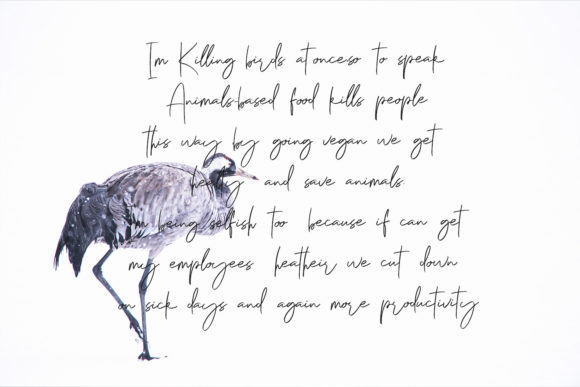 Im Killing birds at once.so to speak
Animals-based food kills people
this way by going vegan we get
healty and save animals.
Im being selfish too because if can get
my employees heatheir we cut down
on sick days and again more productivity